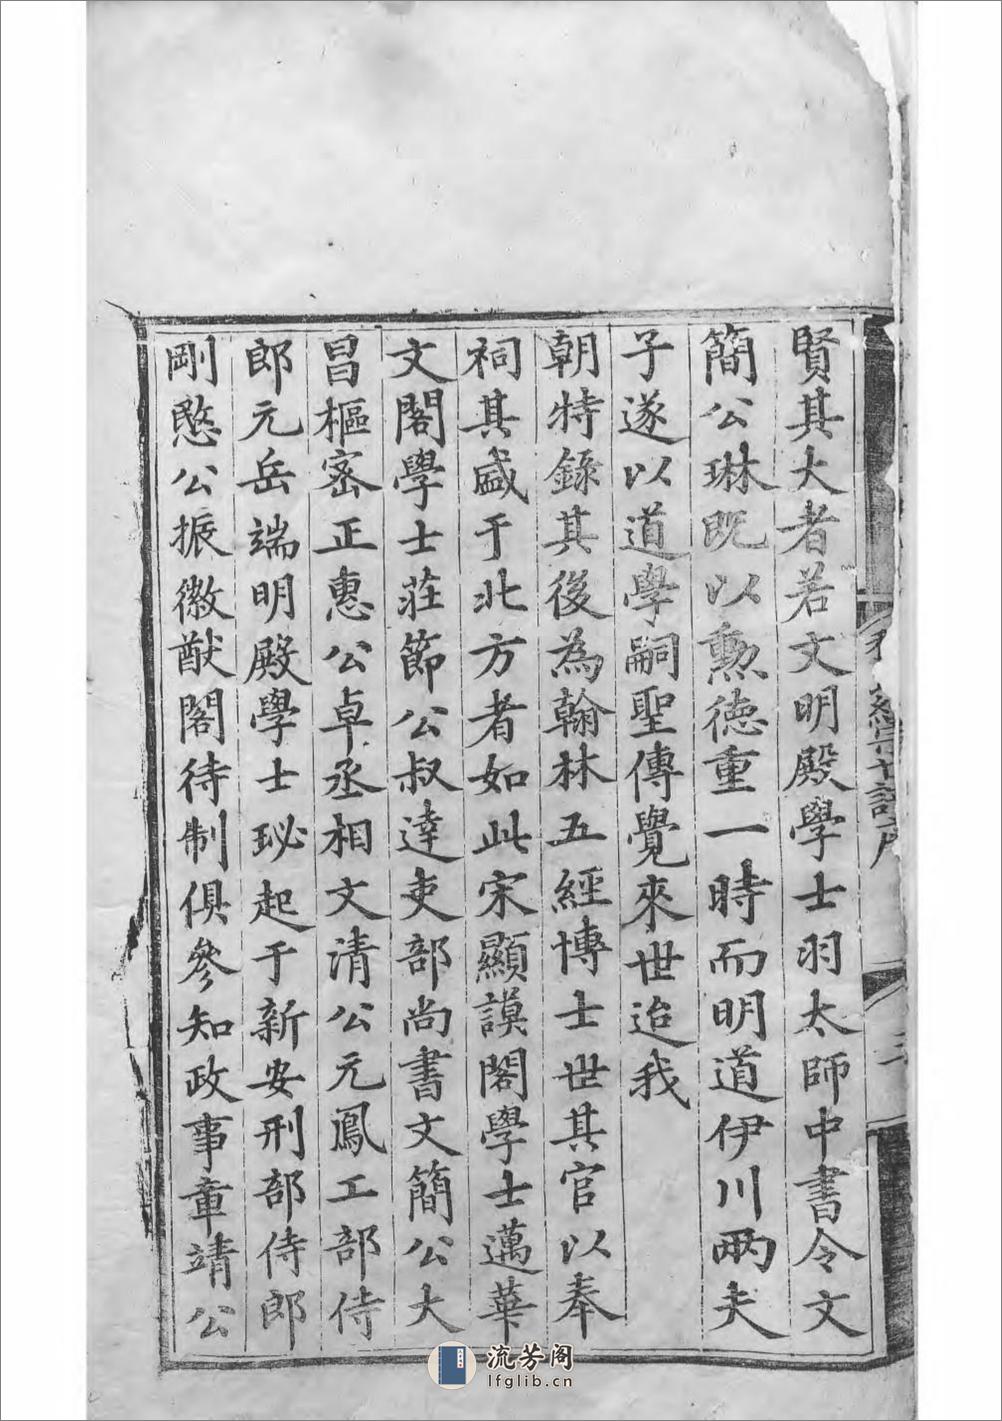 賢其大者若文明殿學士羽太師中書令文
簡公琳既以勲德重一時而明道伊川兩夫
子遂以道學嗣聖傳覺來世迨我
朝特錄其後為翰林五經博士世其官以奉
祠其盛于北方者如此宋顯謨閣學士邁華
文閣學士莊節公叔達吏部尚書文簡公大
昌樞密正惠公卓丞相文清公元鳳工部侍
郎元岳端明殿學士珌起于新安刑部侍郎
剛愍公振徽猷閣待制俱參知政事章靖公
流芳阁
lfglib.cn